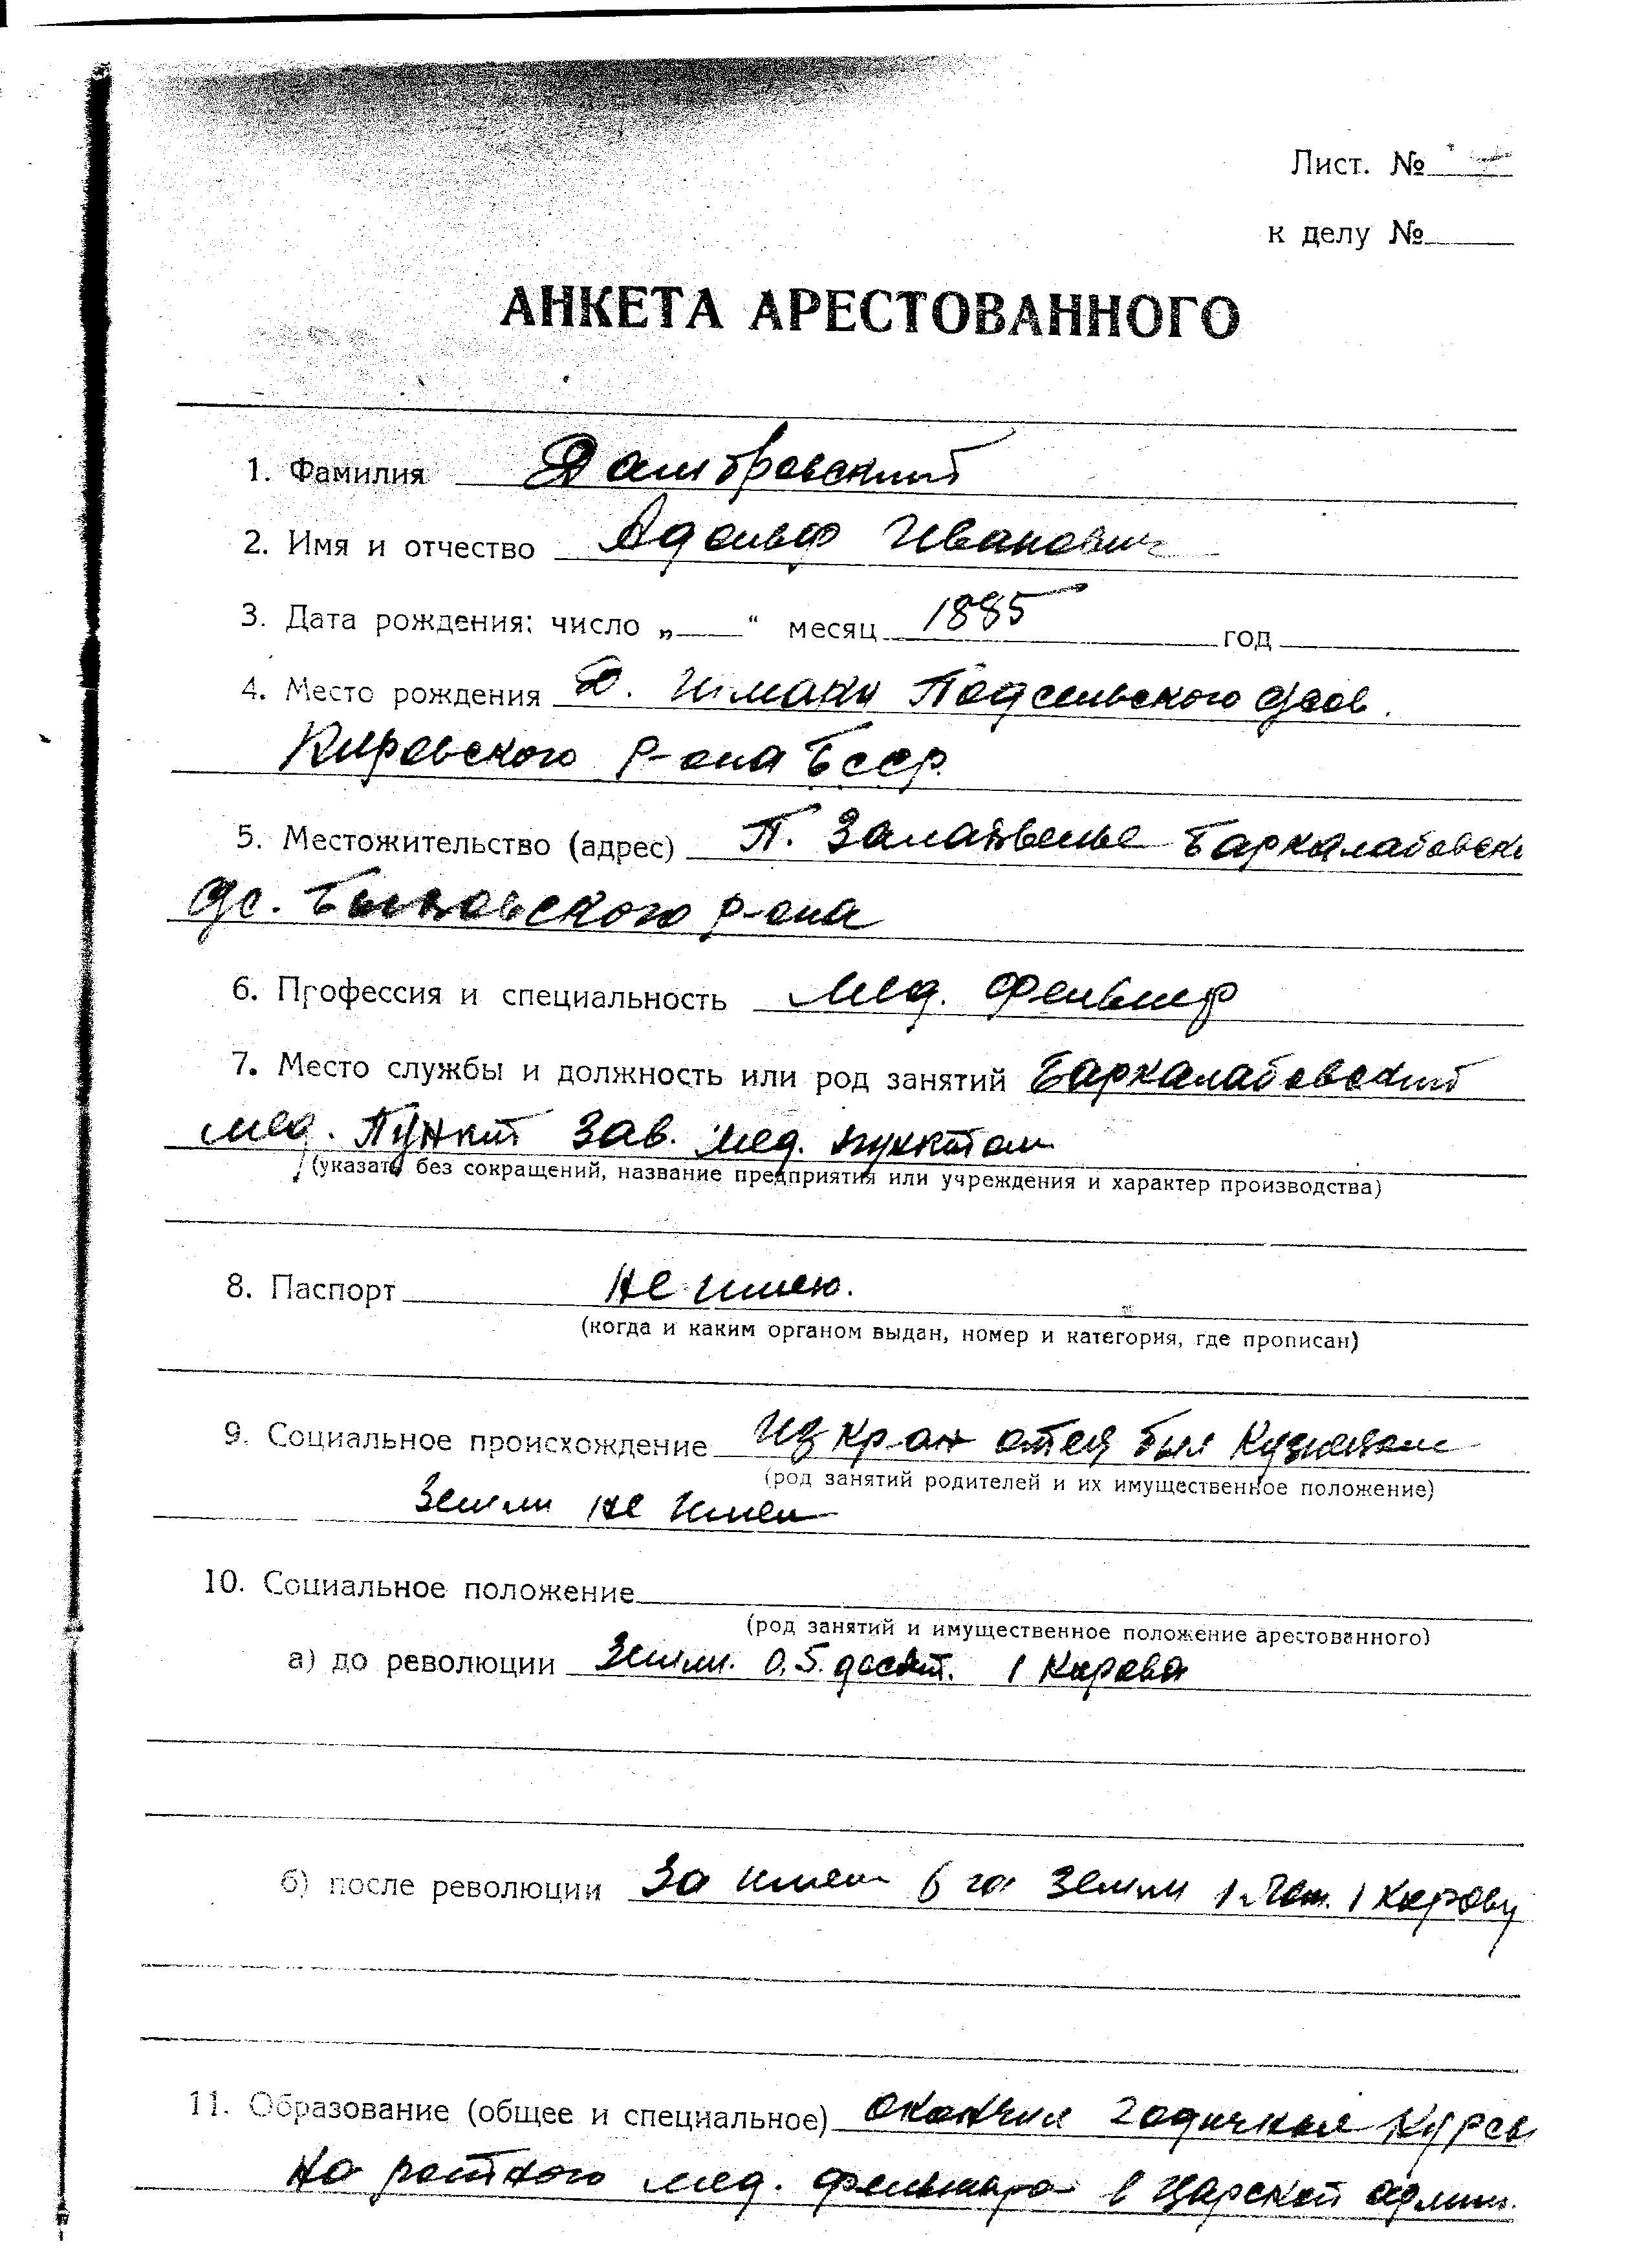 Лист. №
к делу №
АНКЕТА АРЕСТОВАННОГО
1. Фамилия Домбровский
2. Имя и отчество Адольф Иванович
3. Дата рождения: число „ “ месяц 1885 год
4. Место рождения Д. Шмаки Подсельского с/сов.
Кировского р-она Бсср.
5. Местожительство (адрес) П. Баркалабовск
с/с. Быховского р-она
6. Профессия и специальность мед. фельшер
7. Место службы и должность или род занятий Баркалабовский
мед. Пункт Зав. мед. пунктом
(указать без сокращений, название предприятия или учреждения и характер производства)
8. Паспорт не имею.
(когда и каким органом выдан, номер и категория, где прописан)
9. Социальное происхождение Из крян отец был кузнецом
(род занятий родителей и их имущественное положение)
Земли не имел
10. Социальное положение
(род занятий и имущественное положение арестованного)
а) до революции Земли. 0,5. десят. 1 Карова
б) после революции За имел 6 га Земли 1 лош. 1 карову
11. Образование (общее и специальное) окончил 2 годичная курсы
на ротного мед. фельшара в царской армии.